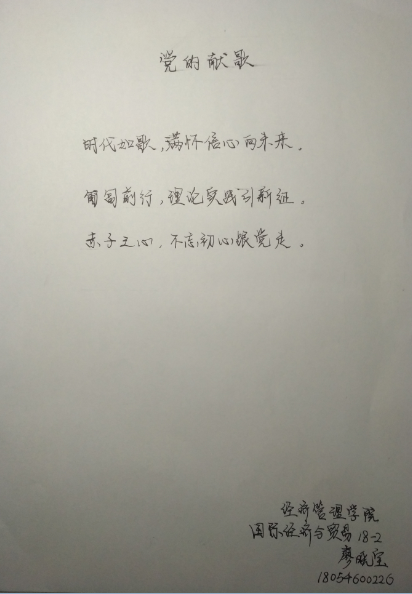 党的献歌
时代如歌，满怀信心向未来。
匍匐前行，理论实践引新征。
赤子之心，不忘初心跟党走。
经济管理学院
国际经济与贸易18-2
廖
18054600226